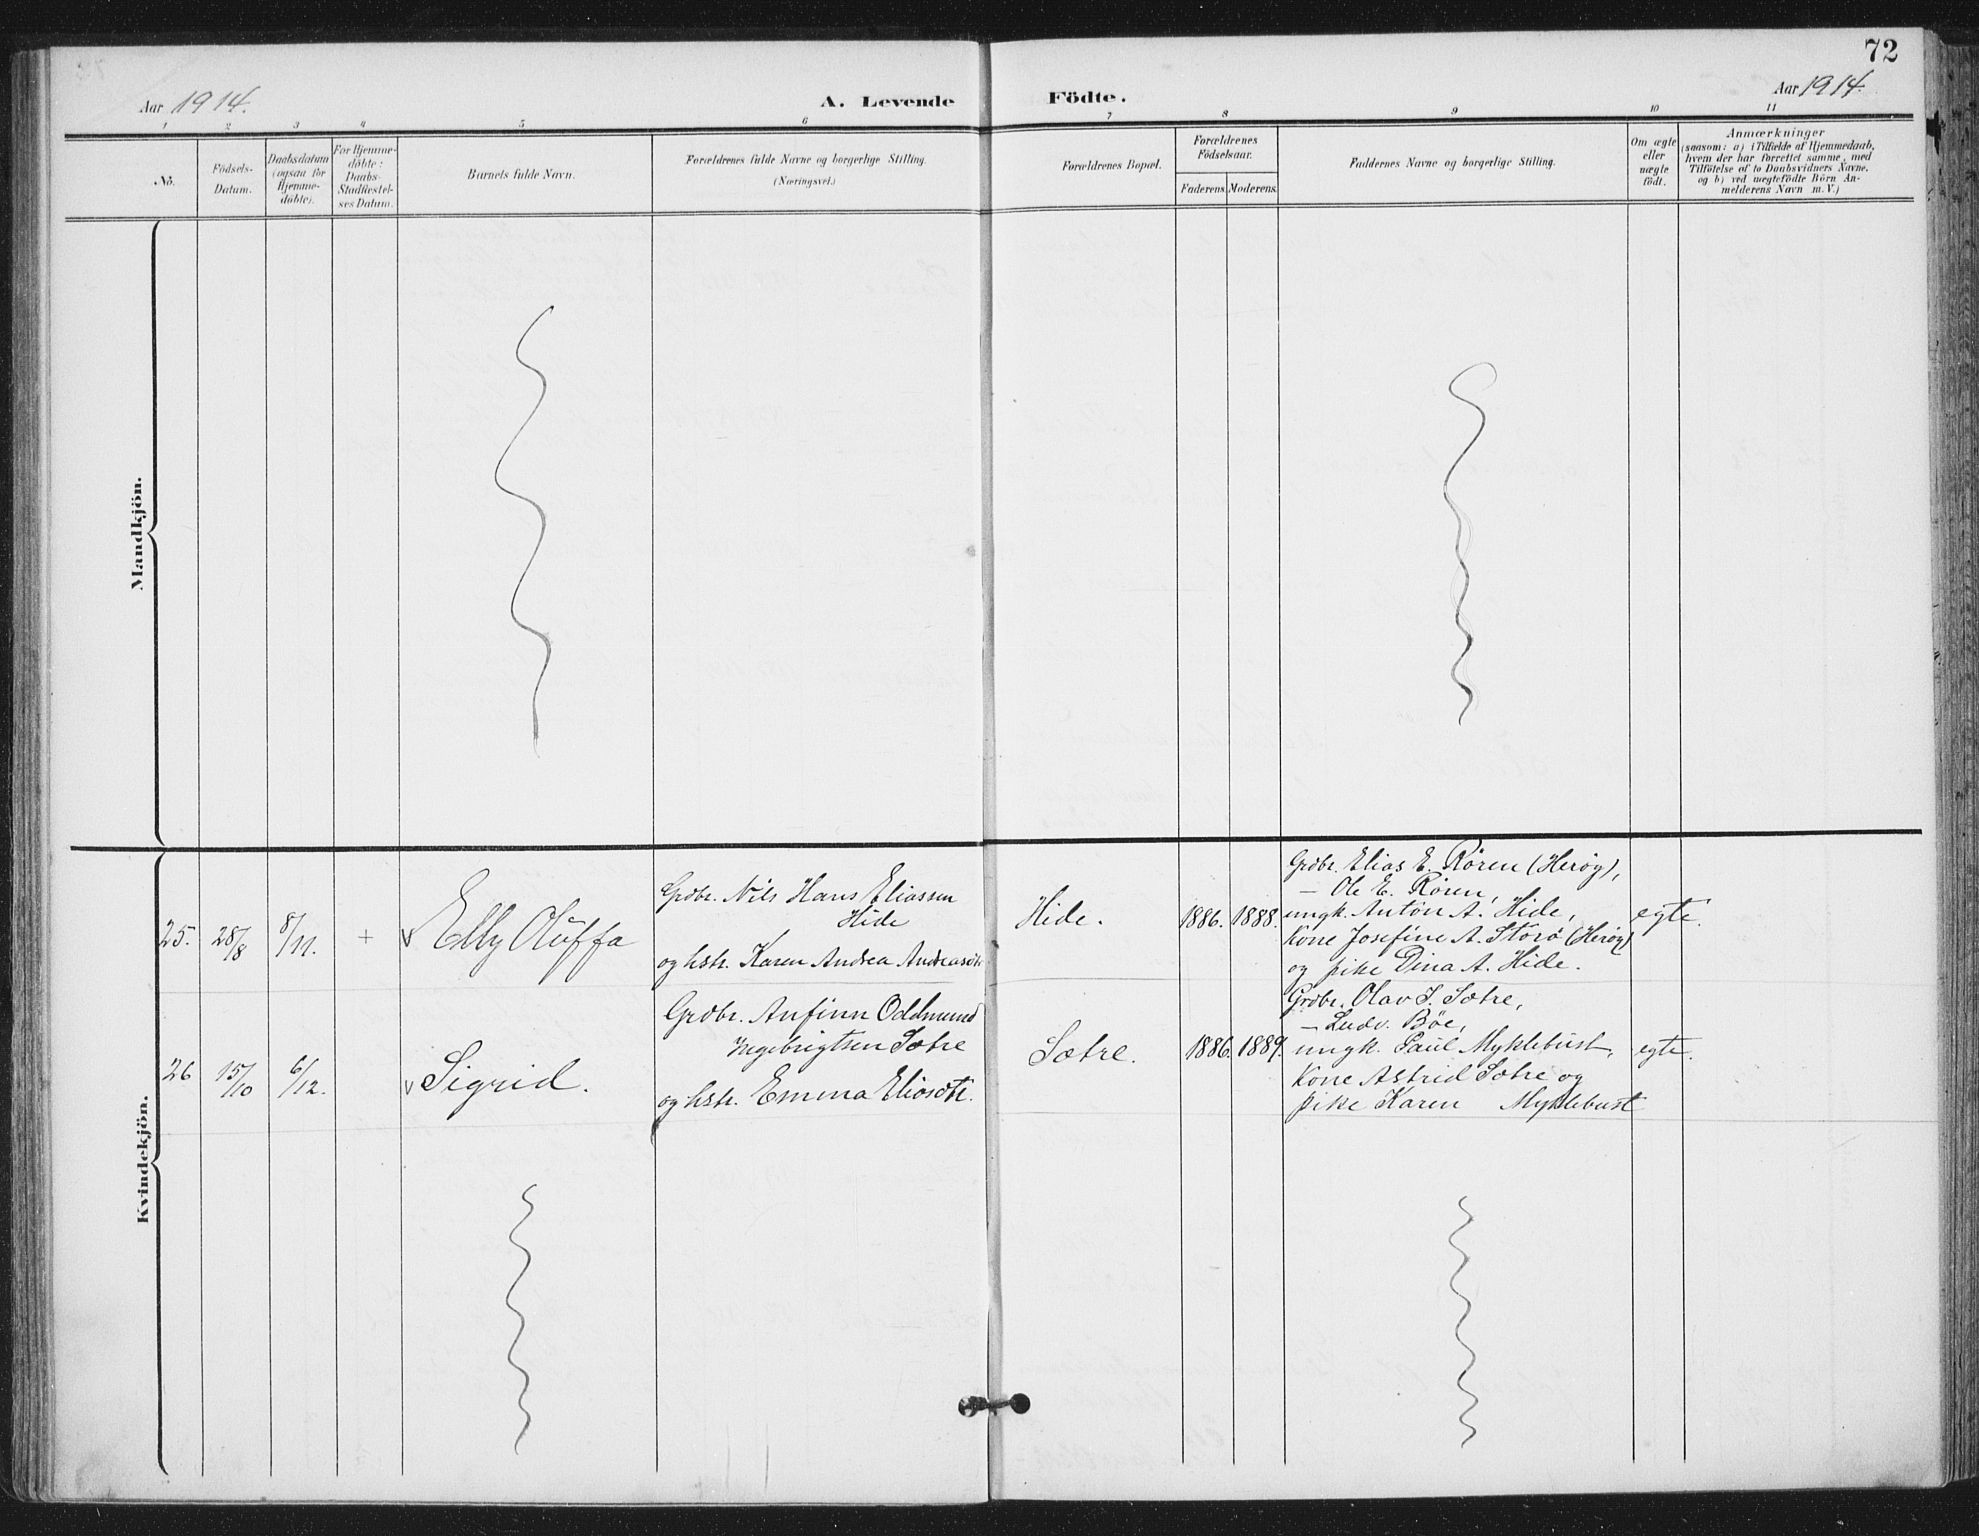 72
Aar 1914.
A. Levende Födte.
Aar 1914.
1 2 3 4 5 6 7 8 9 10 11
No.
Födsels-
Datum.
Daabsdatum
(ogsaa for
Hjemme-
döbte).
For Hjemme-
döbte:
Daabs-
Stadfæstel-
ses Datum.
Barnets fulde Navn.
Forældrenes fulde Navne og borgerlige Stilling.
(Næringsvei.)
Forældrenes Bopæl.
Forældrenes
Födselsaar.
Faderens. Moderens.
Faddernes Navne og borgerlige Stilling.
Om ægte
eller
uægte
födt.
Anmærkninger
(saasom: a) i Tilfælde af Hjemmedaab,
hvem der har forrettet samme, med
Tilföielse af to Daabsvidners Navne,
og b) ved uægtefödte Börn An-
melderens Navn m. V.)
Mandkjön.
Kvindekjön.
25. 28/8 8/11. + v Elly Oluffa
Grdbr. Nils Hans Eliassen
Hide
og hstr. Karen Andrea Andreasdtr
Hide. 1886. 1888.
Grdbr. Elias E. Røren (Herøy),
— Ole E. Røren,
ungk. Anton A. Hide,
Kone Josefine A. Storø (Herøy)
og pike Dina A. Hide.
egte.
26 15/10 6/12. v Sigrid.
Grdbr. Anfinn Oddmund
Ingebrigtsen Sætre
og hstr. Emma Eliasdtr.
Sætre. 1886. 1889.
Grdbr. Olav I. Sætre,
— Ludv. Bøe,
ungk. Paul Myklebust,
Kone Astrid Sætre og
pike Karen Myklebust
egte.